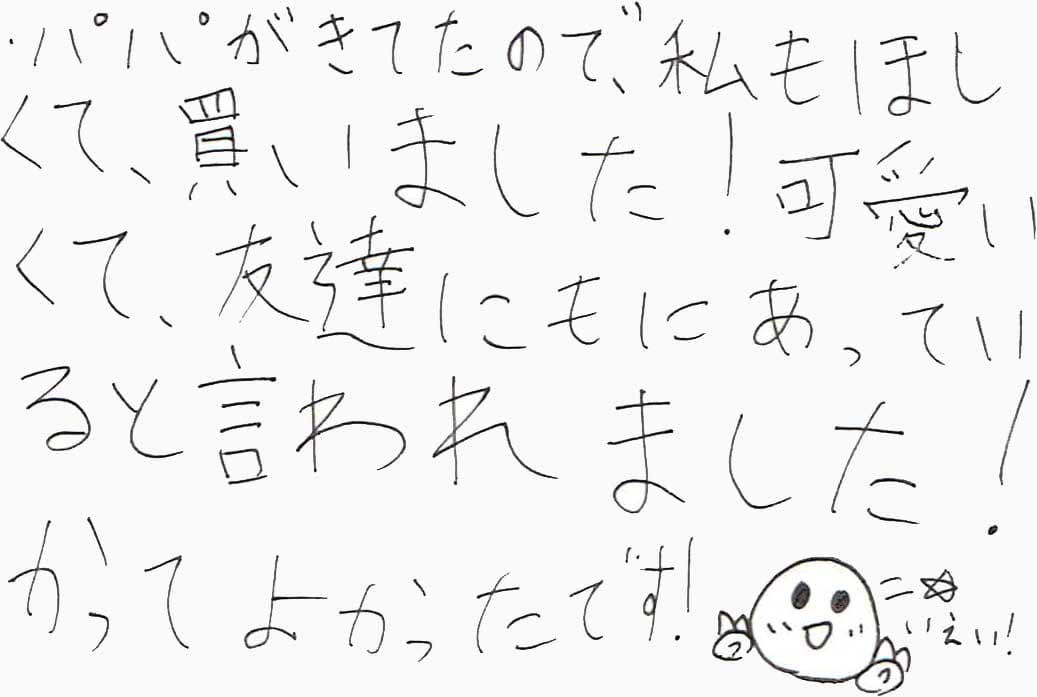 ・パパがきてたので、私もほし
くて、買いました！可愛い
くて、友達にもにあってい
ると言われました！
かってよかったです！
いぇい！